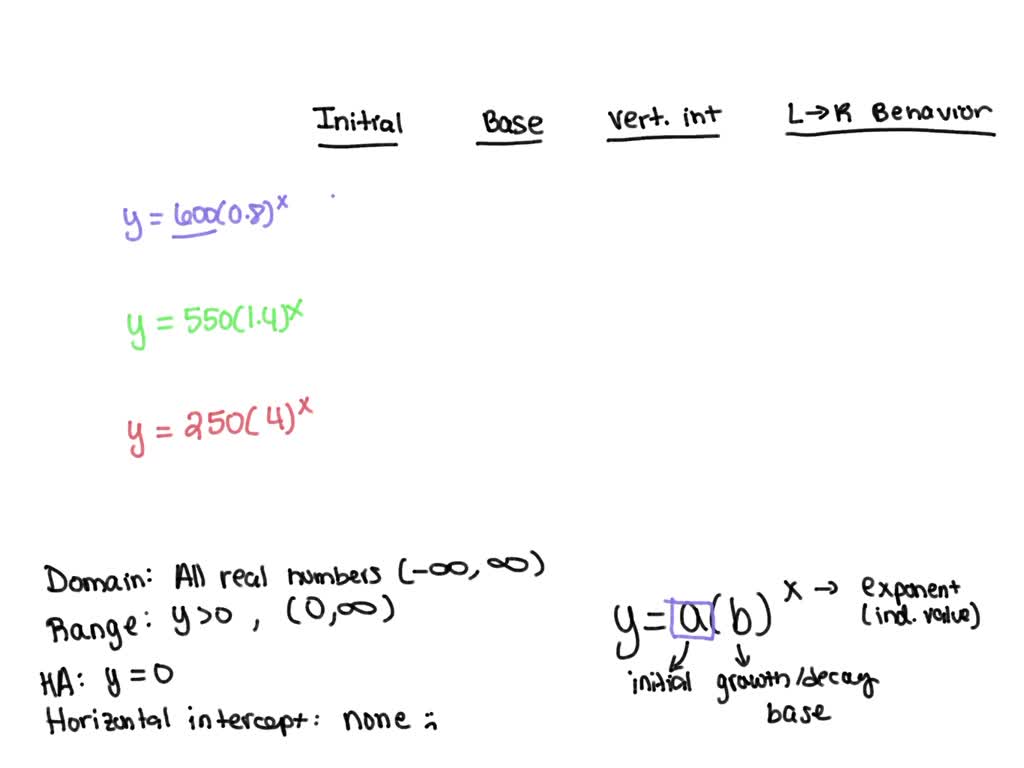 Initial Base Vert. int L→R Behavior
y = 600(0.8)^x
y = 550(1.4)^x
y = 250(4)^x
Domain: All real numbers (-∞, ∞)
Range: y>0 , (0,∞)
HA: y = 0
Horizontal intercept: none :
y = a(b)^x → exponent
(ind. value)
initial growth/decay
base